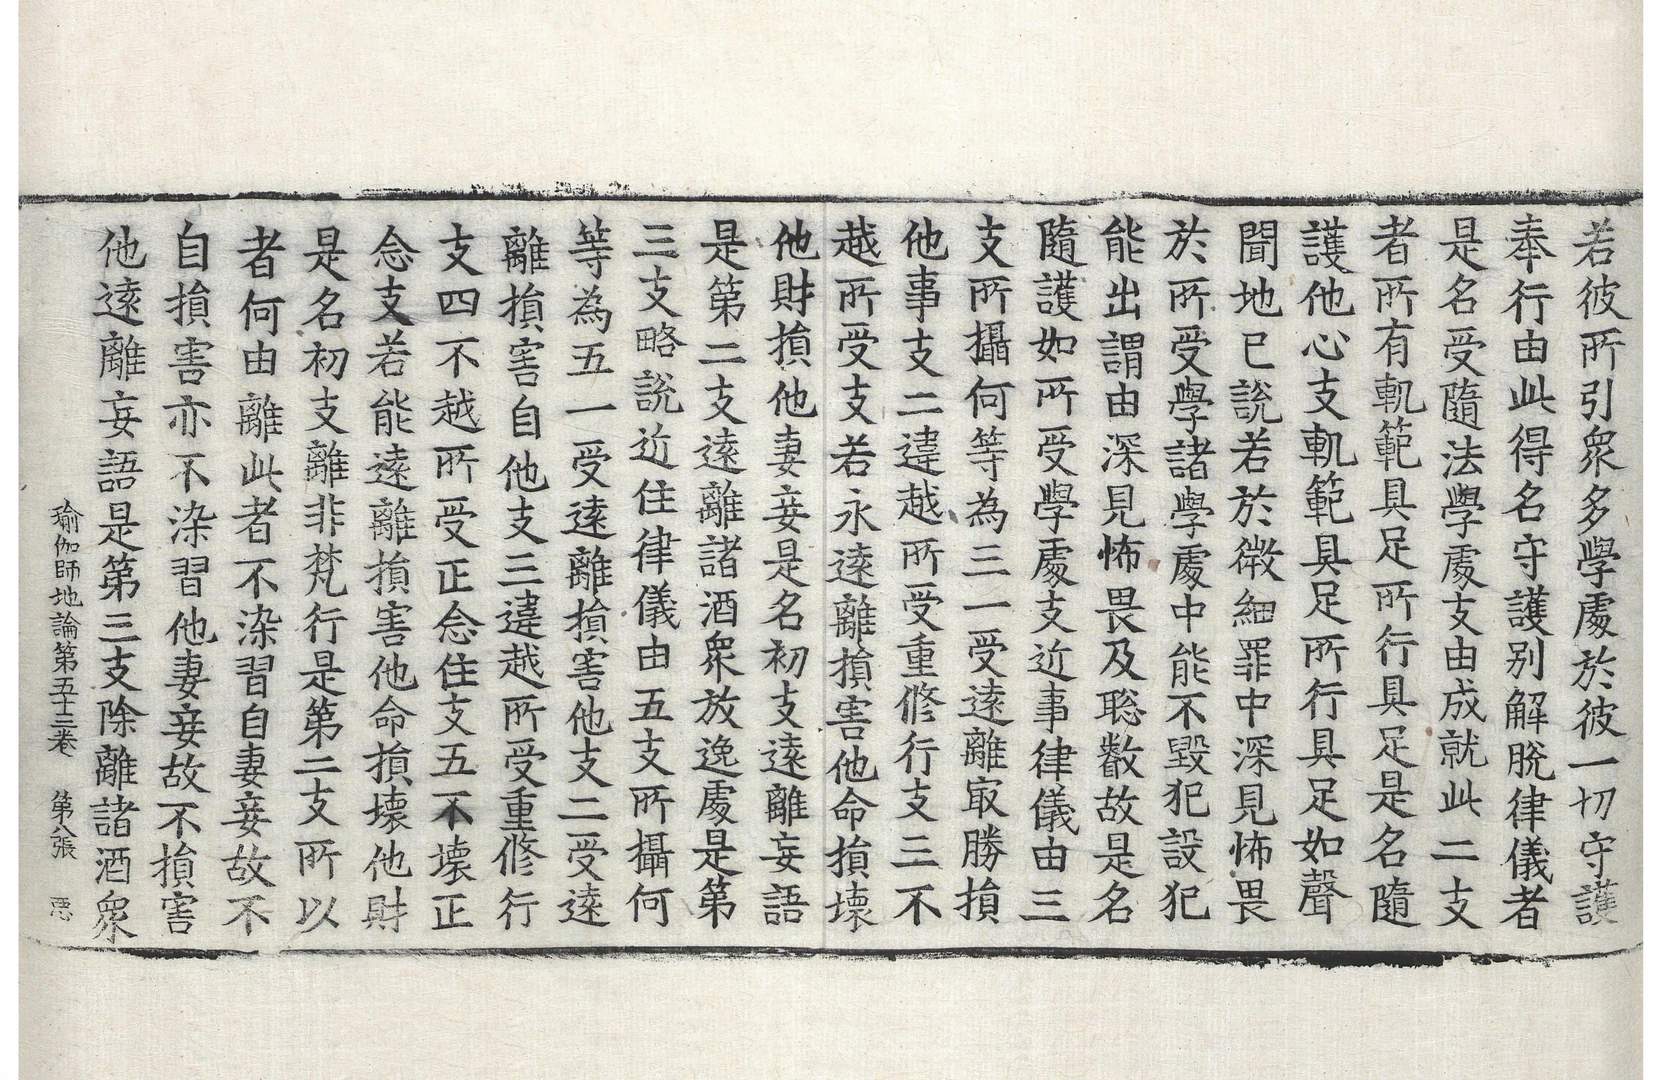 若彼所引衆多學處於彼一切守護
奉行由此得名守護别解脫律儀者
是名受隨法學處支由成就此二支
者所有軌範具足所行具足是名隨
護他心支軌範具足所行具足如聲
聞地已說若於微細罪中深見怖畏
於所受學諸學處中能不毀犯設犯
能出謂由深見怖畏及聡叡故是名
隨護如所受學處支近事律儀由三
支所攝何等為三一受遠離㝡勝損
他事支二違越所受重修行支三不
越所受支若永遠離損害他命損壞
他財損他妻妾是名初支遠離妄語
是第二支遠離諸酒衆放逸處是第
三支略說近住律儀由五支所攝何
等為五一受遠離損害他支二受遠
離損害自他支三違越所受重修行
支四不越所受正念住支五不壞正
念支若能遠離損害他命損壞他財
是名初支離非梵行是第二支所以
者何由離此者不染習自妻妾故不
自損害亦不染習他妻妾故不損害
他遠離妄語是第三支除離諸酒衆
瑜伽師地論第五十三卷 第八張 悪